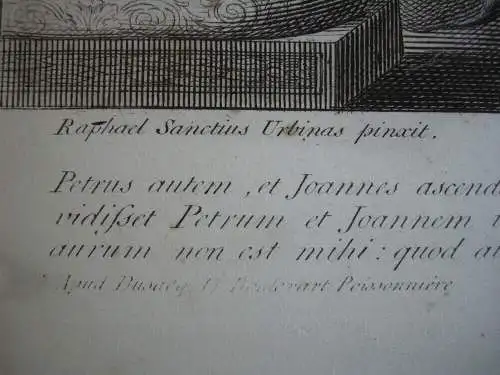 Raphael Sanctius Urbinas pinxit.
Petrus autem, et Joannes ascend
vidisset Petrum et Joannem
aurum non est mihi: quod
Apud Boulevart Poissonnière